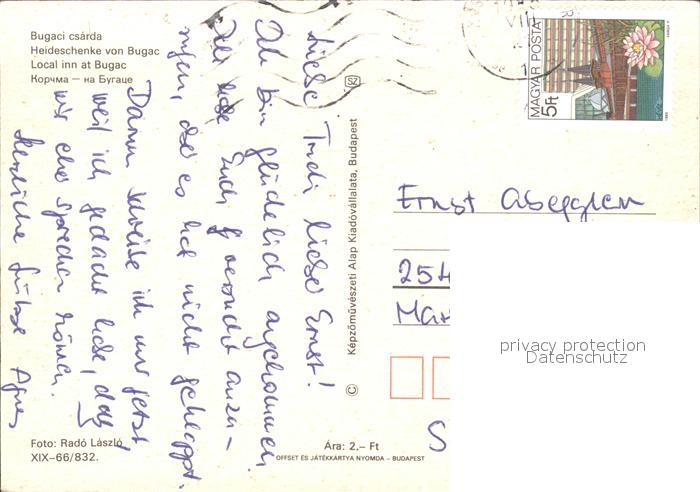 Bugaci csárda
Heideschenke von Bugac
Local inn at Bugac
Корчма — на Бугаце
Liebe Trudi, lieber Ernst!
Ich bin glücklich angekommen.
Ich habe Euch versucht anzu-
rufen, aber es hat nicht geklappt.
Darum schreibe ich nur jetzt,
weil ich gedacht habe, daß
wir eher sprechen können.
Herzliche Grüsse Agnes
Foto: Radó László
XIX–66/832.
Ára: 2.– Ft
OFFSET ÉS JÁTÉKKÁRTYA NYOMDA – BUDAPEST
© Képzőművészeti Alap Kiadóvállalata, Budapest
MAGYAR POSTA
5Ft
VIII
Ernst Abegglen
254
privacy protection
Datenschutz